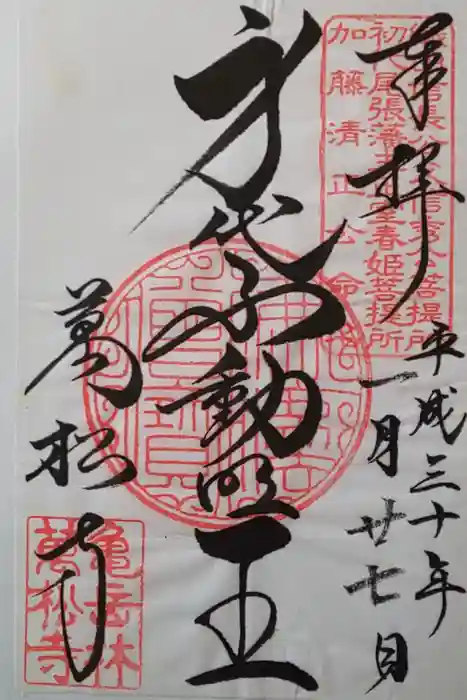 奉拝
平成三十年
一月廿七日
身代不動明王
萬松寺
織田信長公父信秀公菩提所
初代尾張藩主正室春姫菩提所
加藤清正公命
亀岳林
萬松寺